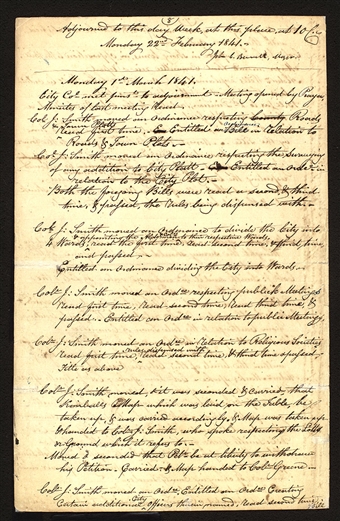 (8)
Adjourned to this day Week, at this place, at 10 
Monday 22nd February 1841.
John C. Bennett, Mayor
Monday 1st March 1841.
City Col met purst to adjournment. Meeting opened by Prayer.
Minutes of last meeting Read.
Col J. Smith moved an Ordinance respecting County Roads
Read first time. Entitled an Bill in Relation to
Roads & Town Plat.
Col J. Smith moved an Ordinance respecting the Surveying
of any addition to City Platt. Entitled an Orde in
relation to the City Plat.
Both the foregoing Bills were read a second & third
time, & passed, the Rules being dispensed with.
Col J. Smith moved an Ordinance to divide the City into
& appointing to the respective Wards,
4 Wards, read the first time, read second time, & third time
and passed.
Entitled an Ordinance dividing the City into Wards.
Col J. Smith moved an Orde respecting public Meetings
Read first time, Read second time, Read third time, &
passed. Entitled an Orde in relation to public Meetings,
Col J. Smith moved an Orde in Relation to Religious Societies
rules dispensed with
read first time, read second time, & third time & passed.
Title as above
Col J. Smith moved, & it was seconded & carried, that
Kimball's Map which was laid on the Table, be
taken up, & was carried accordingly, & Map was taken up
& handed to Col J. Smith, who spoke respecting the
Ground which it refers to.
Moved & seconded that be at liberty to withdraw
his Petition. Carried & Map handed to Col Greene
Col J. Smith moved an Orde Entitled an Orde Creating
City
Certain additional officers therein named, read second time